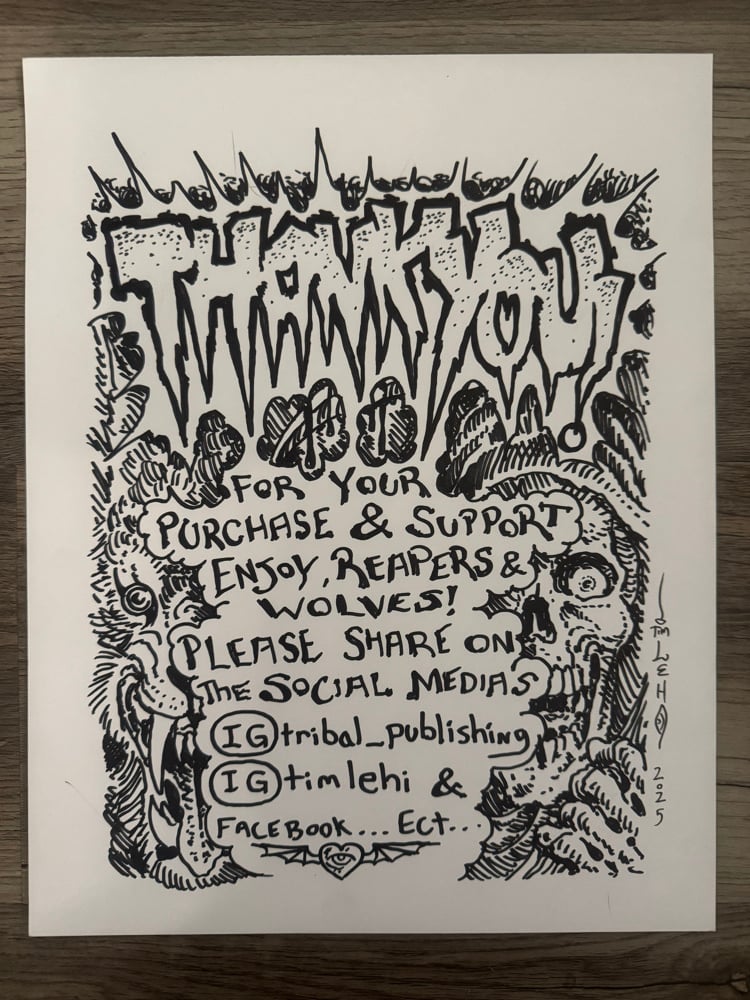 THANK YOU!
FOR YOUR
PURCHASE & SUPPORT
ENJOY, REAPERS &
WOLVES!
PLEASE SHARE ON
THE SOCIAL MEDIAS
IG tribal_publishing
IG timlehi &
FACEBOOK... ECT...
Tim LEHi 2025